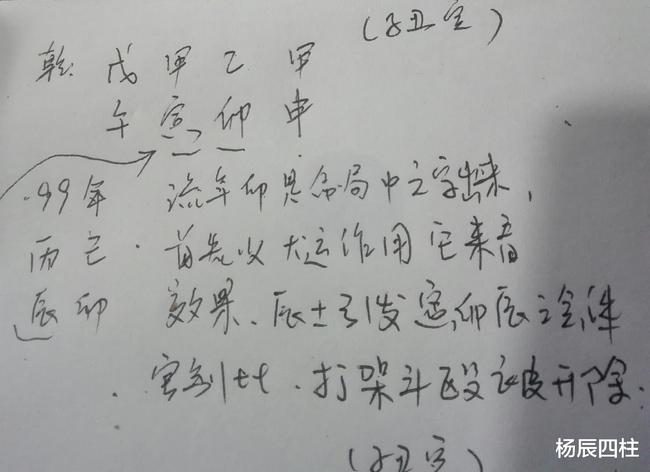 (子丑空)
乾 戊 甲 乙 甲
午 寅 卯 申
99年 流年卯是命局中之字出来,
丙 己 · 首先以大运作用它来看
辰 卯 效果、辰土引发寅,卯辰之会,体
官制比 · 打架斗殴被开除.
(子丑空)
杨辰四柱